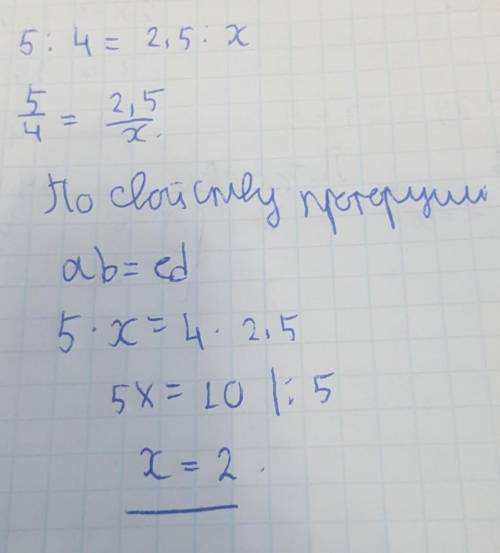 5 : 4 = 2,5 : x
5/4 = 2,5/x.
По свойству пропорции
ab = cd
5 · x = 4 · 2,5
5x = 10 |: 5
x = 2.